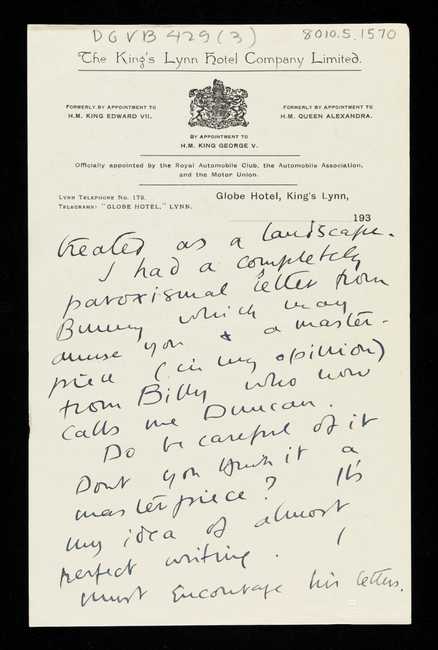 DGVB 429 (3)
8010.5.1570
The King's Lynn Hotel Company Limited.
FORMERLY BY APPOINTMENT TO
H.M. KING EDWARD VII.
FORMERLY BY APPOINTMENT TO
H.M. QUEEN ALEXANDRA.
BY APPOINTMENT TO
H.M. KING GEORGE V.
Officially appointed by the Royal Automobile Club, the Automobile Association,
and the Motor Union.
LYNN TELEPHONE NO. 179.
TELEGRAMS: "GLOBE HOTEL," LYNN.
Globe Hotel, King's Lynn,
193
treated as a landscape.
I had a completely
paroxismal letter from
Bunny which may
amuse you & a master-
piece (in my opinion)
from Billy who now
calls me Duncan.
Do be careful of it
Dont you think it a
masterpiece? It's
my idea of almost
perfect writing. I
must encourage his letters.